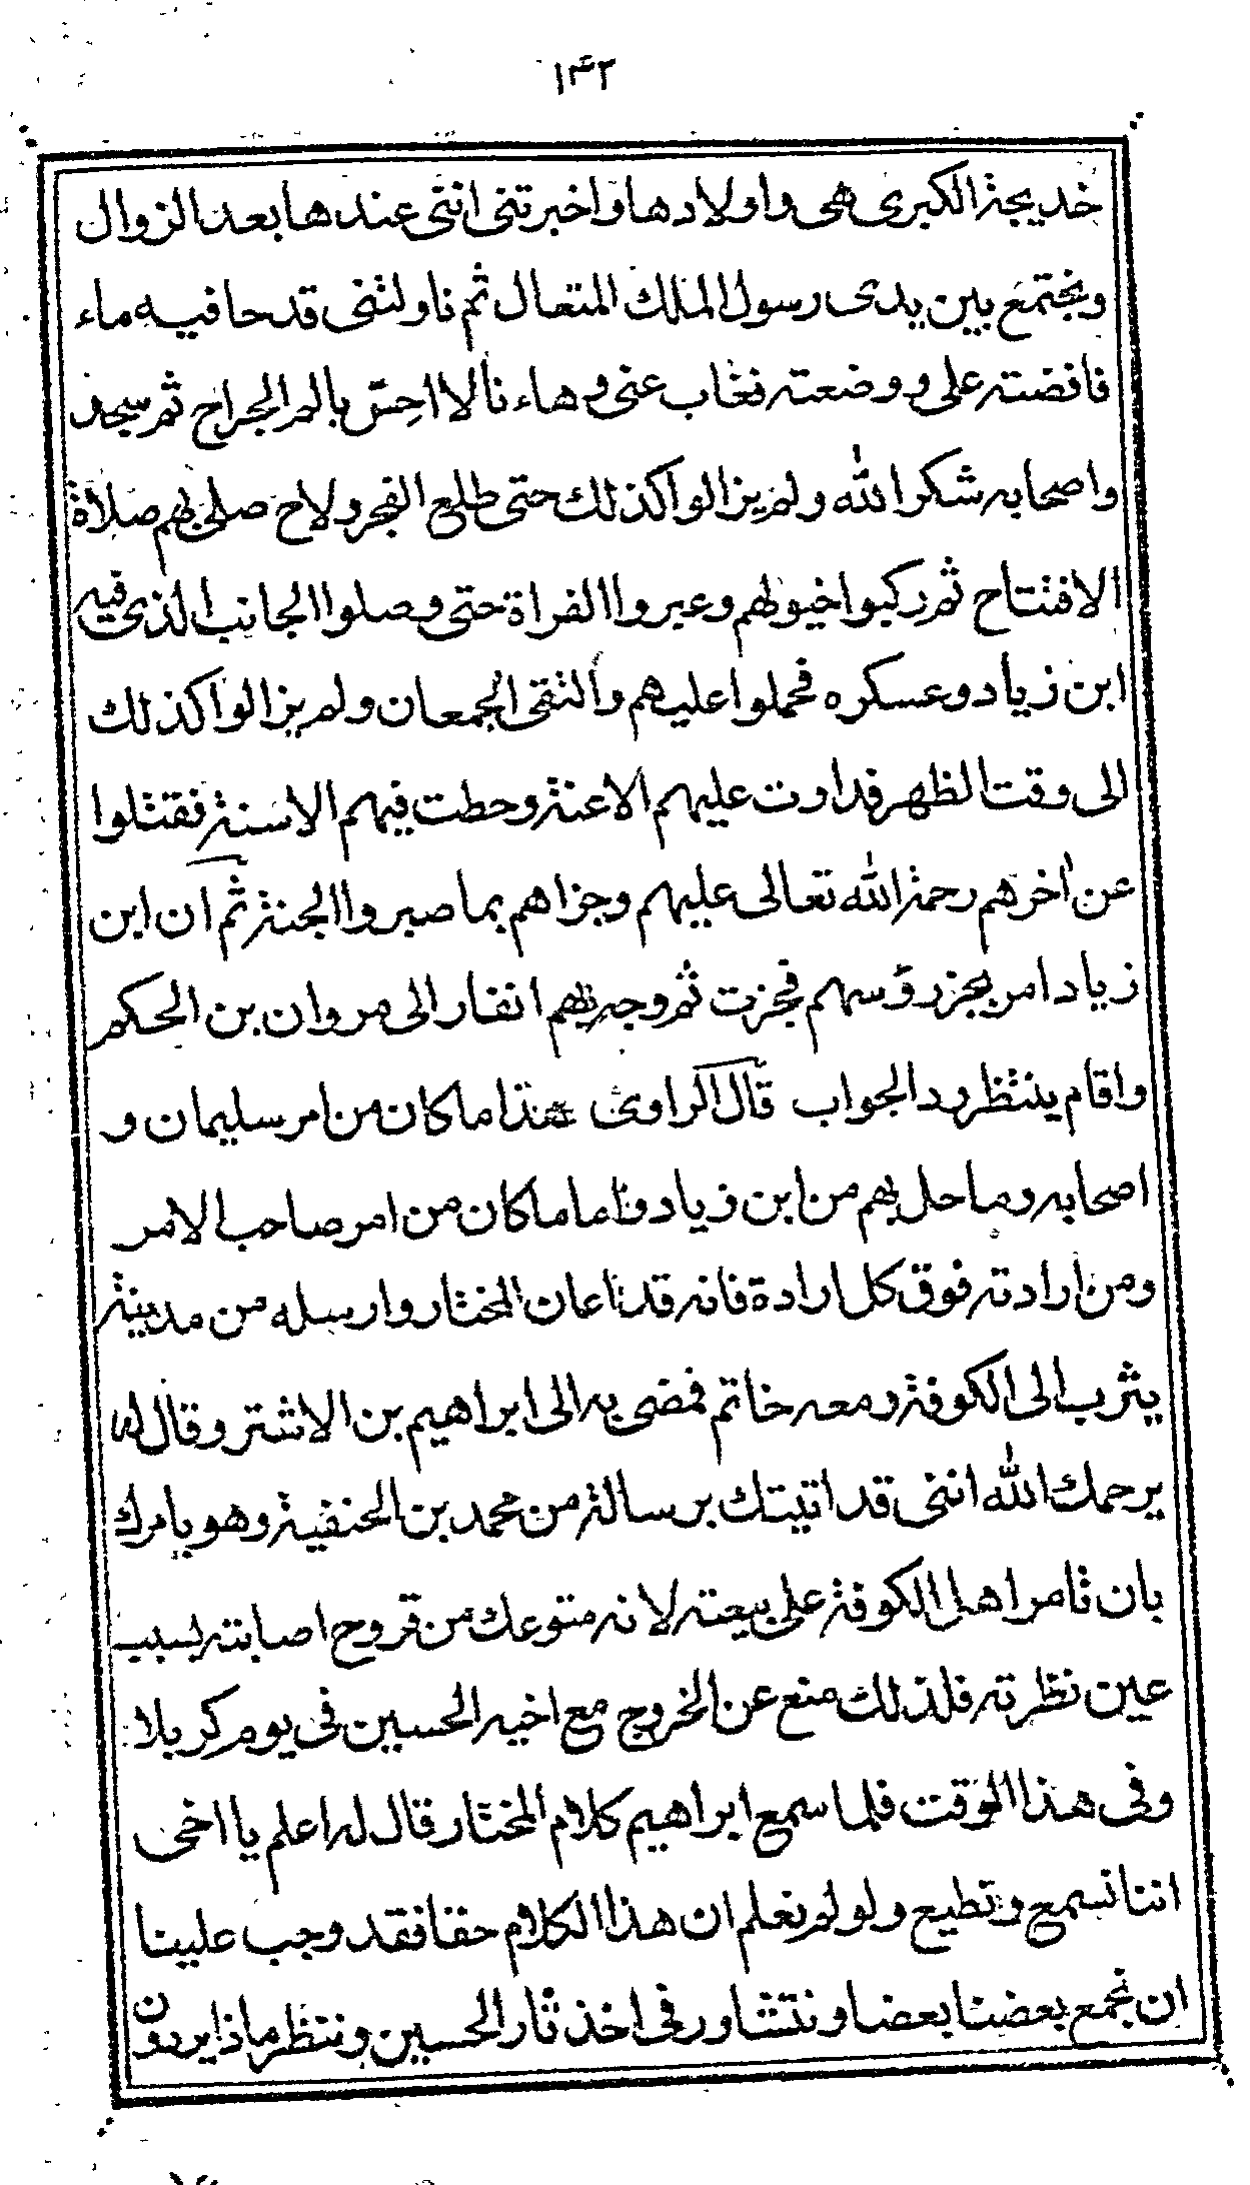 ١٤٢
خديجة الكبرى هى واولادها واخبرتنى اننى عندها بعد الزوال
ونجتمع بين يدى رسول الملك المتعال ثم ناولتنى قدحا فيه ماء
فافضته على ووضعته فغاب عنى وها انا لا احسّ بالم الجراح ثم سجد
واصحابه شكرا لله ولم يزالوا كذلك حتى طلع الفجر ولاح صلى بهم صلاة
الافتتاح ثم ركبوا خيولهم وعبروا الفراة حتى وصلوا الجانب الذى فيه
ابن زياد وعسكره فحملوا عليهم والتقى الجمعان ولم يزالوا كذلك
الى وقت الظهر فداوت عليهم الاعنة وحطت فيهم الاسنة فقتلوا
عن اخرهم رحمة الله تعالى عليهم وجزاهم بما صبروا الجنة ثم ان ابن
زياد امر بجز رؤسهم فجزت ثم وجه بهم انفار الى مروان بن الحكم
واقام ينتظر رد الجواب قال الراوى هذا ما كان من امر سليمان و
اصحابه وما حل بهم من ابن زياد واما ما كان من امر صاحب الامر
ومن ارادته فوق كل ارادة فانه قد اعان المختار وارسله من مدينة
يثرب الى الكوفة ومعه خاتم فمضى به الى ابراهيم بن الاشتر وقال له
يرحمك الله اننى قد اتيتك برسالة من محمد بن الحنفية وهو يامرك
بان تامر اهل الكوفة على بيعته لانه متوعك من قروح اصابته بسبب
عين نظرته فلذلك منع عن الخروج مع اخيه الحسين فى يوم كربلا
وفى هذا الوقت فلما سمع ابراهيم كلام المختار قال له اعلم يا اخى
اننا نسمع ونطيع ولو لم نعلم ان هذا الكلام حقا فقد وجب علينا
ان نجمع بعضنا بعضا ونتشاور فى اخذ ثار الحسين وننتظر ماذا يردون